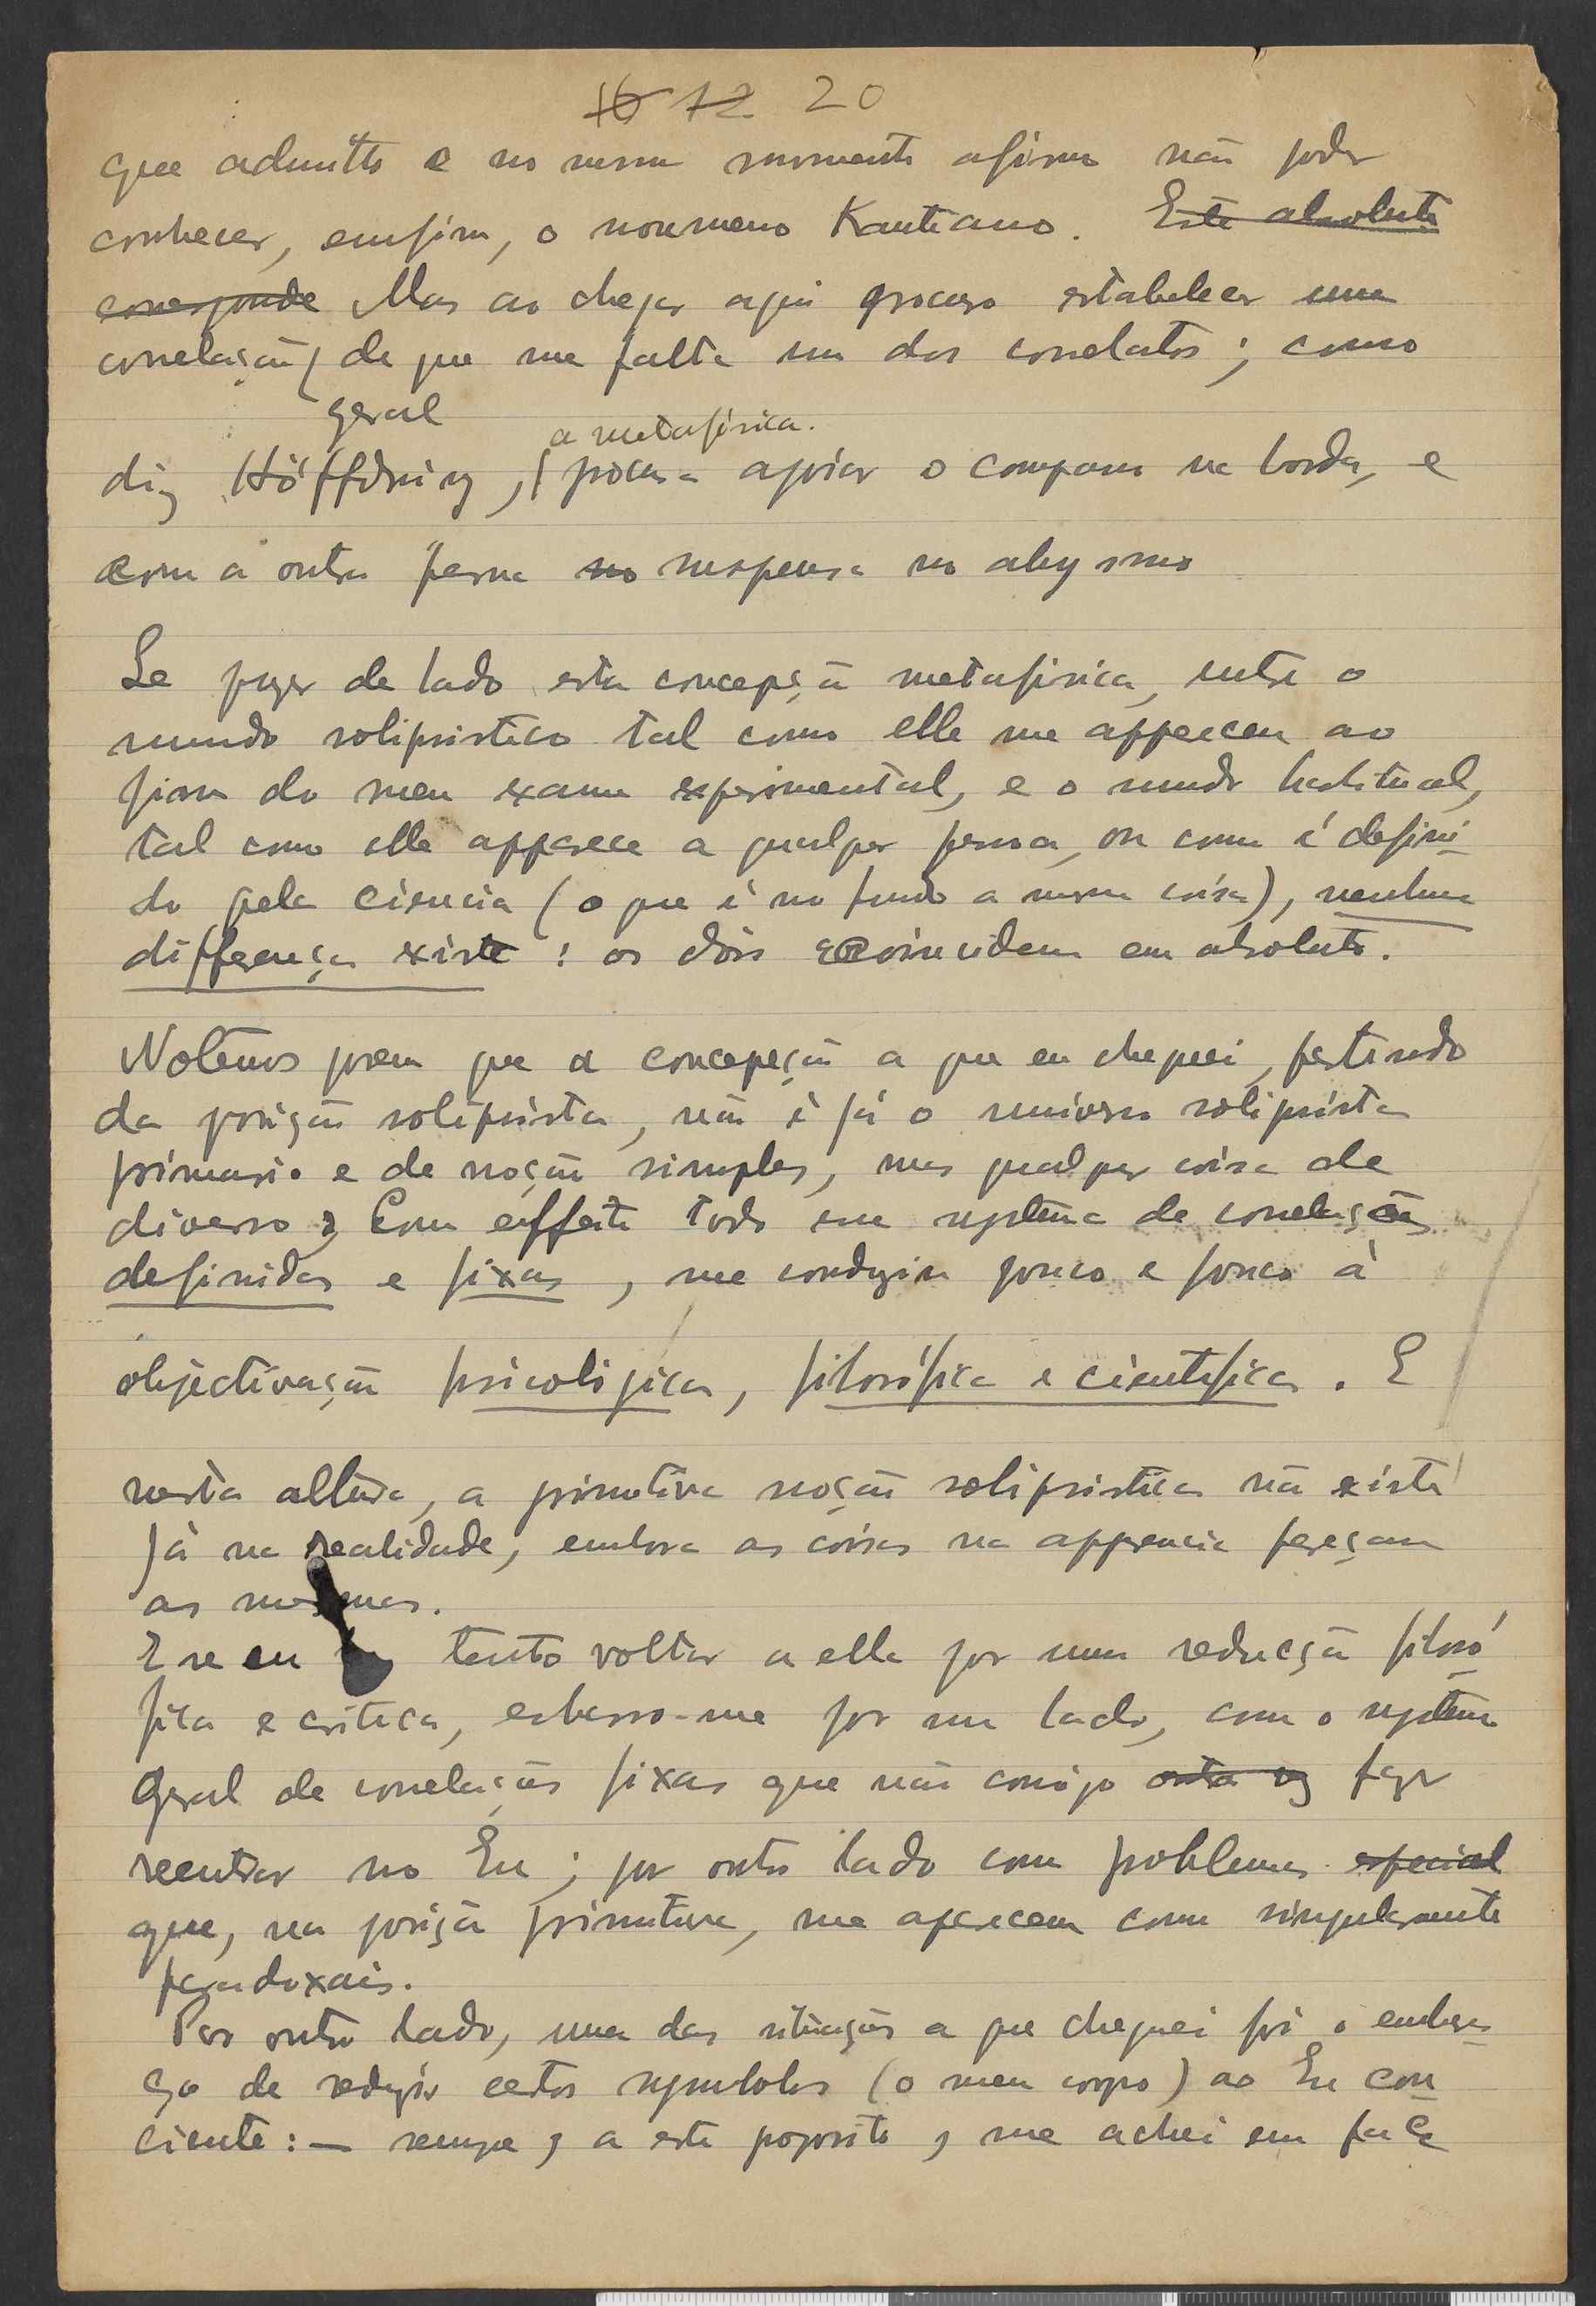 16 12 20
que admitto e no mesmo momento afirmo não poder
conhecer, emfim, o noumeno Kantiano. Este absoluto
corresponde Mas ao chegar aqui procuro estabelecer uma
correlação de que me falta um dos correlatos; como
geral
a metafísica.
diz Höffding, procura apoiar o compasso na borda, e
com a outra perna no suspensa no abysmo
Se puzer de lado esta concepção metafísica, entre o
mundo solipsistico tal como elle me appareceu ao
fim do meu exame experimental, e o mundo habitual,
tal como elle apparece a qualquer pessoa, ou como é defini-
do pela ciencia (o que é no fundo a mesma coisa), nenhuma
differença existe: os dois coincidem em absoluto.
Notemos porem que a concepção a que eu cheguei, partindo
da posição solipsista, não é já o universo solipsista
primario e de noção simples, mas qualquer coisa de
diverso; Com effeito todo um systema de correlações
definidas e fixas, me conduziu pouco e pouco à
objectivação psicológica, filosófica e cientifica. E
nesta altura, a primitiva noção solipsistica não existe
já na realidade, embora as coisas na apparencia pareçam
as mesmas.
E se eu tento voltar a ella por uma reducção filosó-
fica e critica, esbarro-me por um lado, com o systema
geral de correlações fixas que não consigo outra vez fazer
reentrar no Eu; por outro lado com problemas especial
que, na posição primitiva, me aparecem como singularmente
paradoxais.
Por outro lado, uma das situações a que cheguei foi o embara-
ço de reduzir certos symbolos (o meu corpo) ao Eu con-
ciente: — sempre, a este proposito, me achei em face